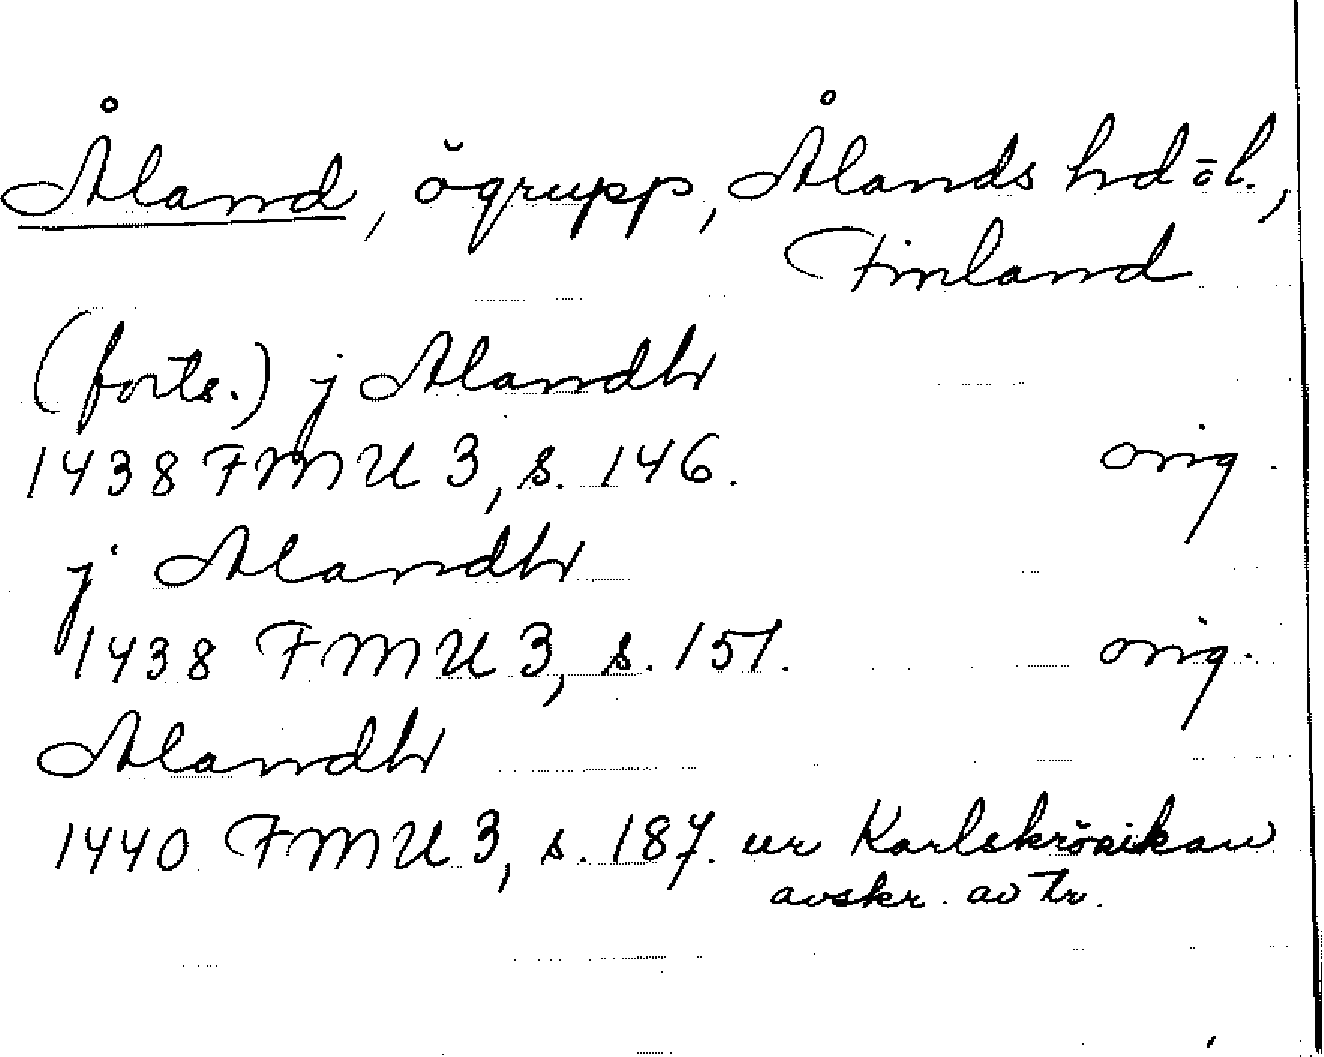 Åland, ögrupp, Ålands hd ö l.,
Finland
(forts.) j Alandh
1438 FMU 3, s. 146. orig.
j Alandh
1438 FMU 3, s. 151. orig.
Alandh
1440 FMU 3, s. 187. ur Karlskrönikan
avskr. av tr.